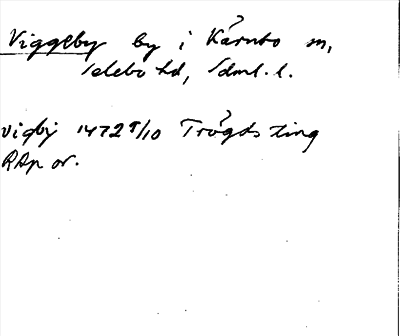 Viggeby by i Kärnbo sn,
Selebo hd, Sdml. l.
vigby 1472 5/10 Trögds ting
RAp or.